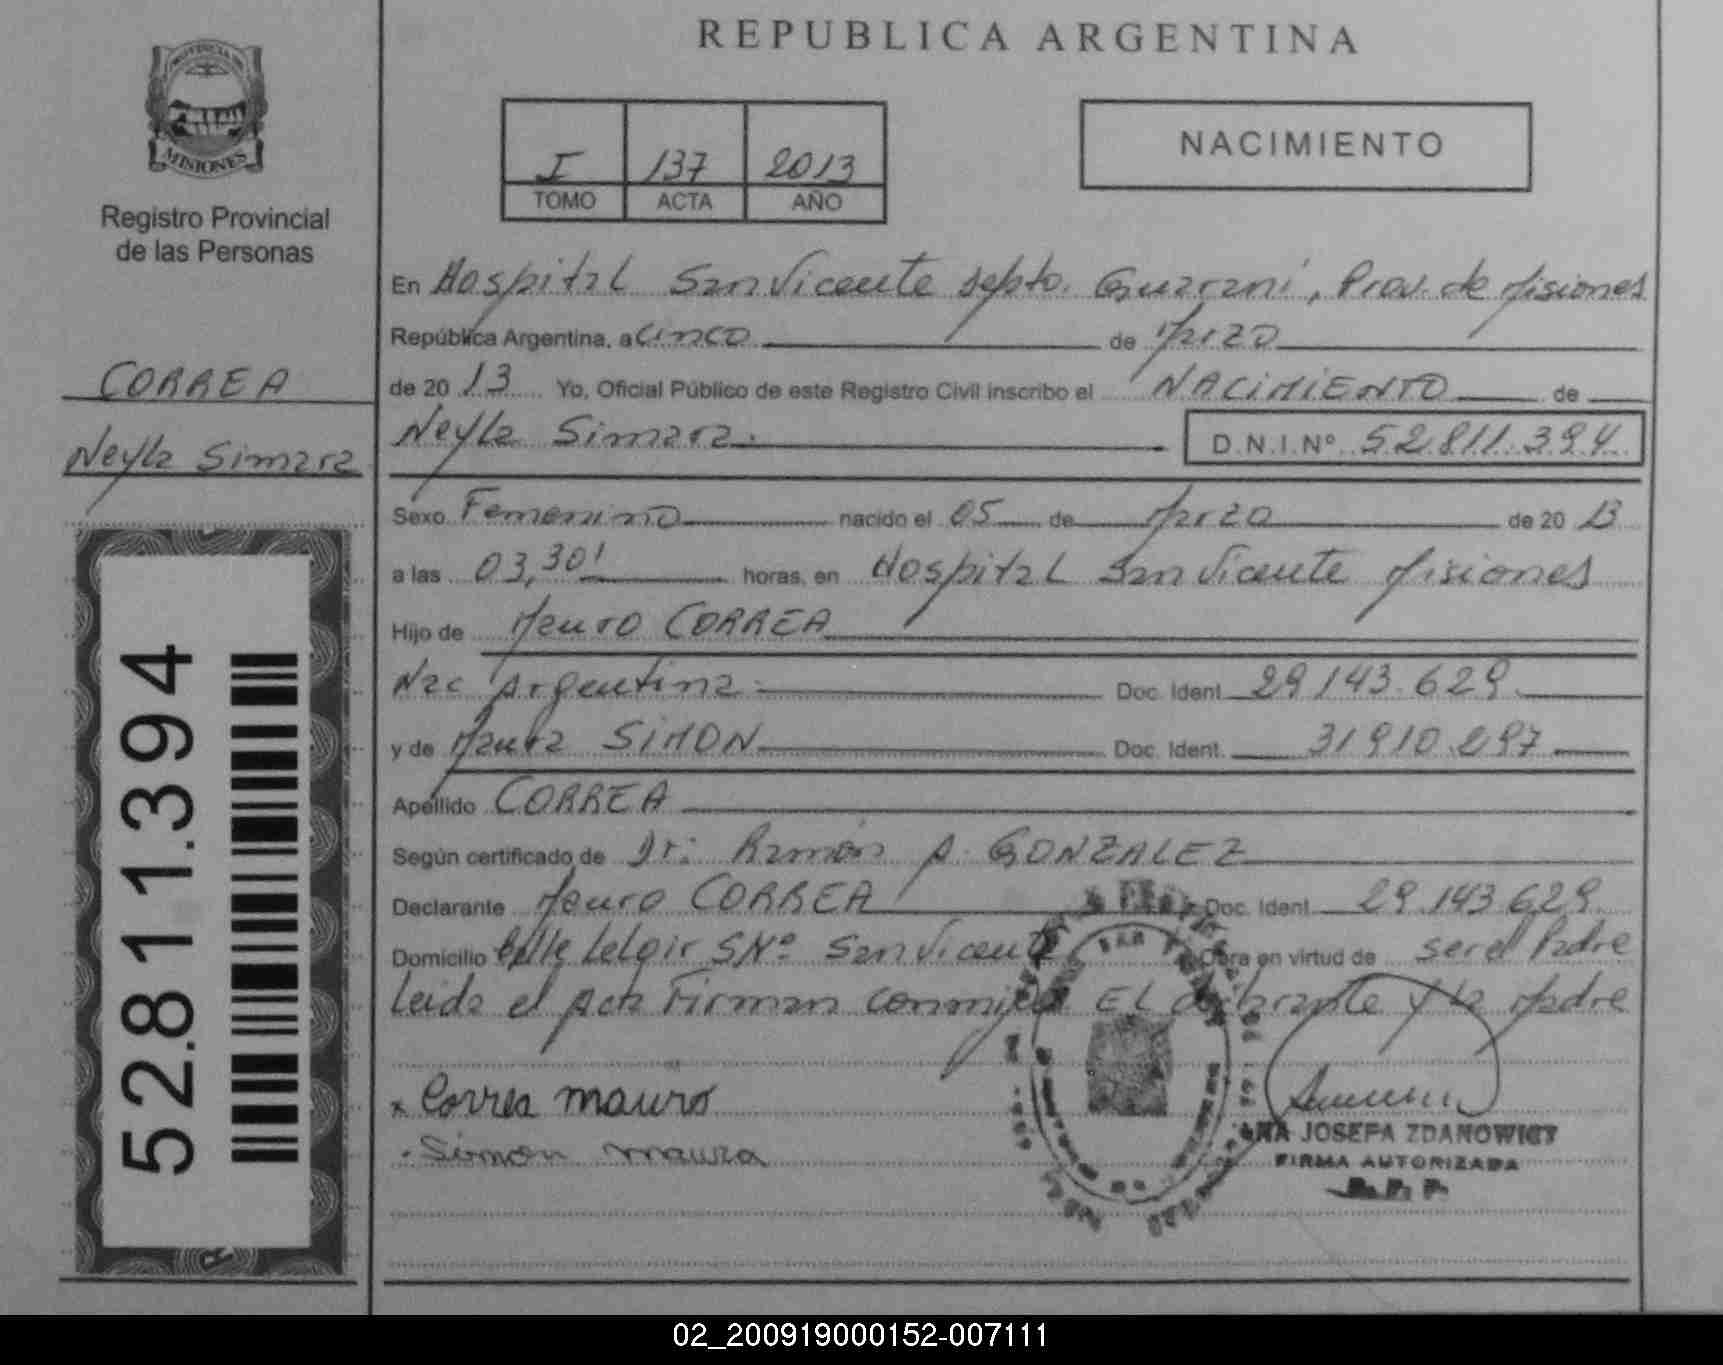 REPUBLICA ARGENTINA
PROVINCIA DE
MISIONES
Registro Provincial
de las Personas
I 137 2013
TOMO ACTA AÑO
NACIMIENTO
CORREA
Neyla Simara
52.811.394
En Hospital San Vicente Depto. Guaraní, Prov. de Misiones
República Argentina, a Cinco de Marzo
de 20 13 Yo, Oficial Público de este Registro Civil inscribo el NACIMIENTO de
Neyla Simara. D.N.I.Nº 52.811.394
Sexo Femenino nacido el 05 de Marzo de 20 13
a las 03,30' horas, en Hospital San Vicente Misiones
Hijo de Mauro CORREA
Nac Argentina Doc. Ident 29.143.629
y de Maura SIMON Doc. Ident. 31.910.897
Apellido CORREA
Según certificado de Dr: Ramón A. GONZALEZ
Declarante Mauro CORREA Doc. Ident 29.143.629
Domicilio Calle Leloir S/Nº San Vicente Obra en virtud de ser el Padre
Leida el Acta Firman conmigo El declarante y la Madre
x Correa mauro
Simon maura
ANA JOSEFA ZDANOWICZ
FIRMA AUTORIZADA
R. P. P.
02_200919000152-007111